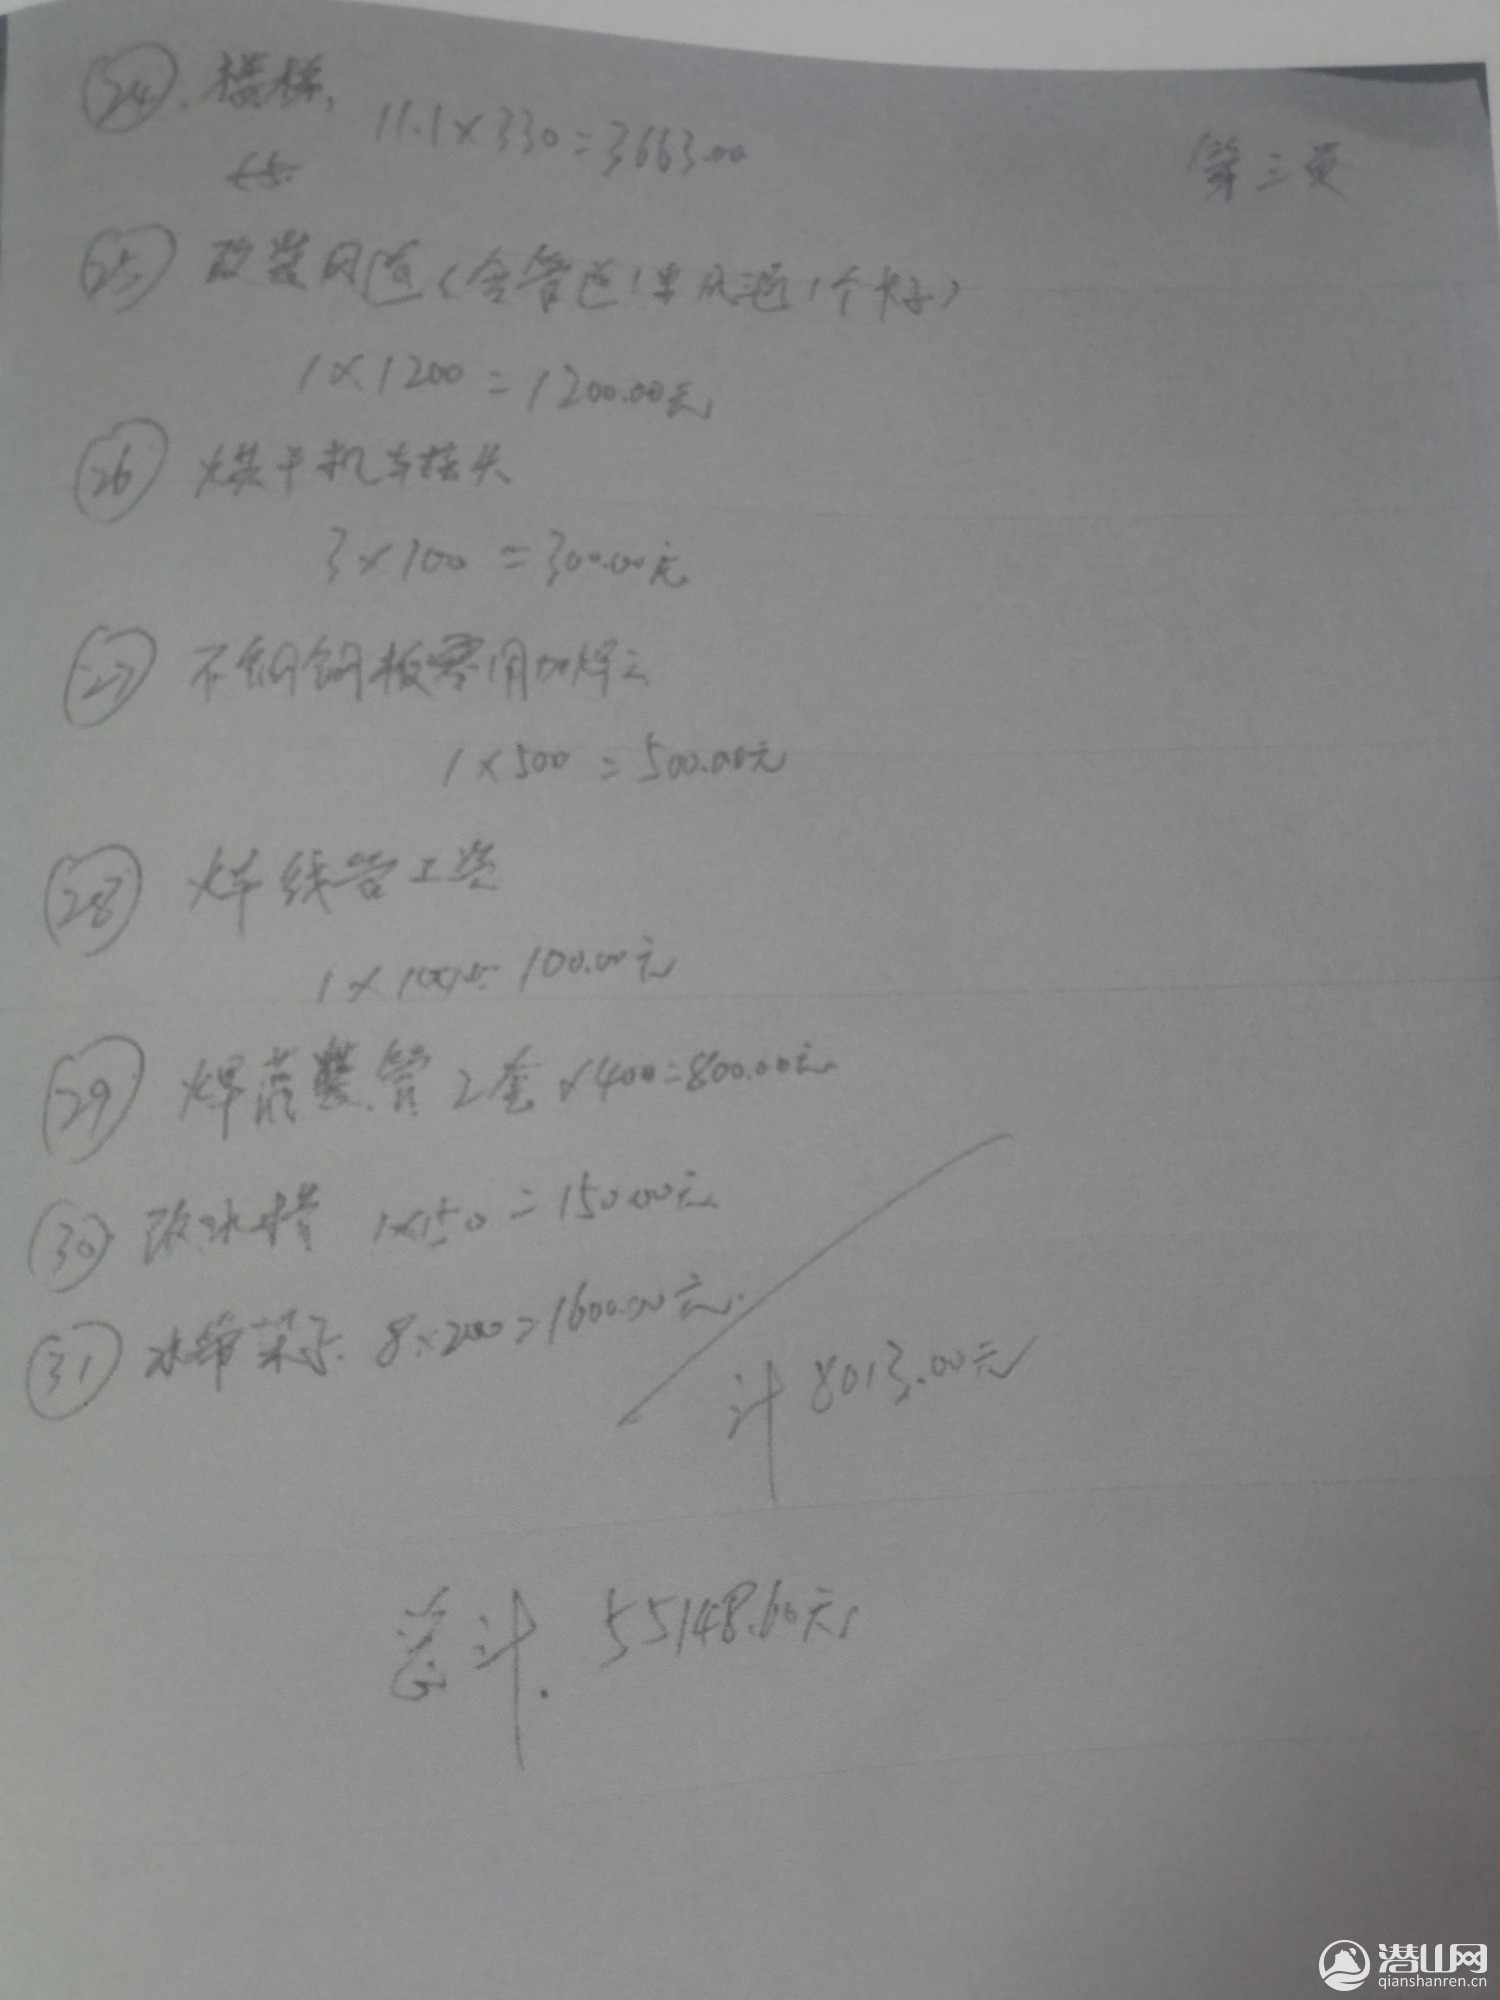 第三页
㉔ 楼梯, 11.1×330=3663.00
㉕ 改装风道(含管道1 1个卡子)
1×1200=1200.00元
㉖ 烘干机车接头
3×100=300.00元
㉗ 不钢钢板零用加焊工
1×500=500.00元
㉘ 焊线管工资
1×100 100.00元
㉙ 焊蒸 管2套×400=800.00元
㉚ 改水槽 1×150=150.00元
㉛ 水 架子 8×200=1600.00元
计8013.00元
总计. 55148.60元
潜山网
qianshanren.cn